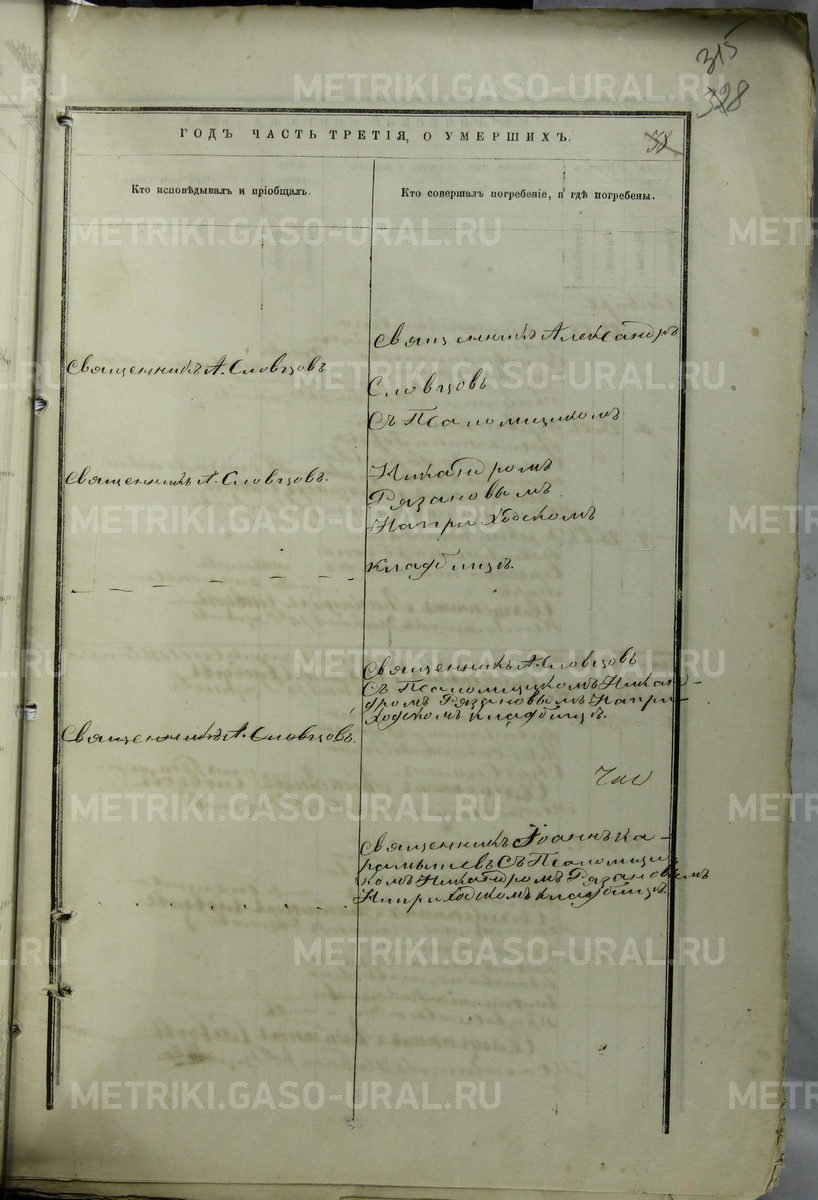 315
328
38
ГОДЪ ЧАСТЬ ТРЕТІЯ, О УМЕРШИХЪ.
Кто исповѣдывалъ и пріобщалъ.
Кто совершалъ погребеніе, и гдѣ погребены.
Священникъ Александръ
Священникъ А. Словцовъ
Словцовъ
Съ Псаломщикомъ
Священникъ А. Словцовъ.
Никандромъ
Рязановымъ
На приходскомъ
кладбищѣ.
Священникъ А. Словцовъ
Съ Псаломщикомъ Никан-
дромъ Рязановымъ На при-
ходскомъ кладбищѣ.
Священникъ А. Словцовъ.
Священникъ Іоаннъ Ка-
рамышевъ Съ Псаломщи-
комъ Никандромъ Рязановымъ
На приходскомъ кладбищѣ.
METRIKI.GASO-URAL.RU